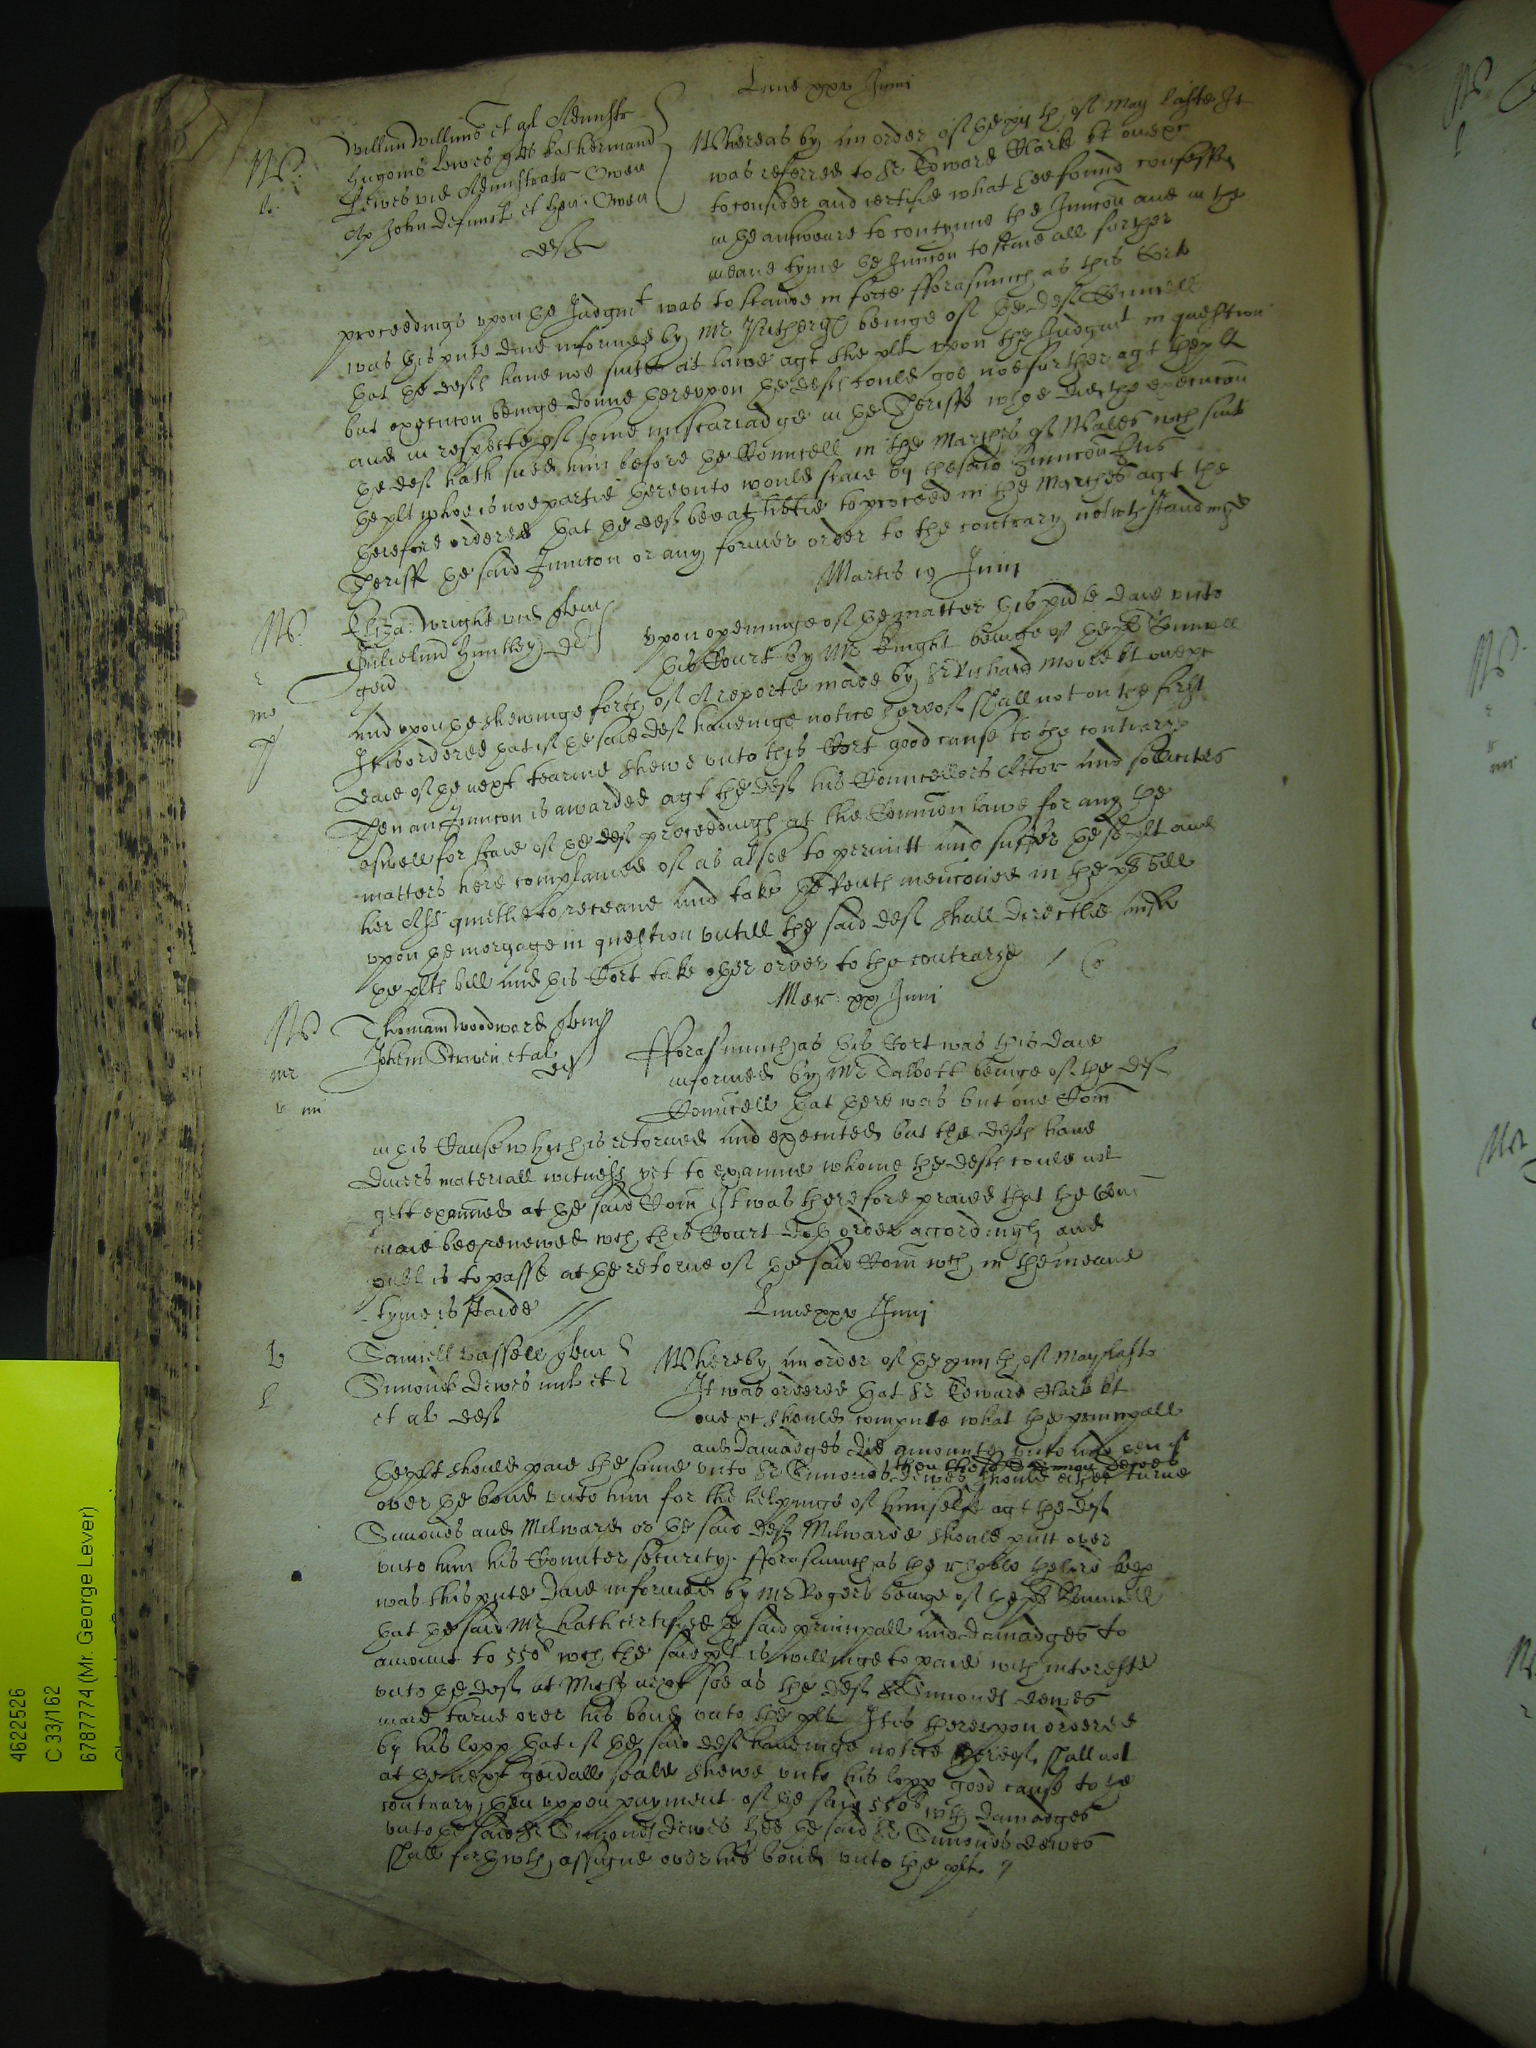 Lune xxv Junii
Willim Willims et al Administr
Hugonis Lewes quer Katherinam
Lewes vid Administratr Owen
Ap John defunct et Hen: Owen
def
Whereas by an order of the xiijth of May laste It
was referred to Sr Edward Clark kt one &c
to consider and certifie what hee found confessed
in the answeare to contynue the Iniunccon and in the
meane tyme the Iniunccon to staie all further
proceedings vpon the Iudgmt was to stand in force fforasmuch as this Court
was this pnte daie informed by Mr beinge of the defts Councell
that the defts have noe suite at lawe agt the plt vpon the Iudgmt in question
but execucon beinge donne therevpon the defts could goe noe further agt the plt
and in respecte of some miscariadge in the Sheriffe whoe did the execucon
the deft hath sued him before the Councell in the Marches of Wales wch suite
the plt whoe is noe partie therevnto would staie by the said Iniunccon It is
therefore ordered that the deft bee at libtie to proceed in the Marches agt the
Sheriff the said Iniunccon or any former order to the contrary notwthstandinge
Martis 19 Junii
Eliza: Wright vid quer
Gulielmu Huntley def
gen
Vpon openinge of the matter this pnte daie vnto
this Court by Mr Knight beinge of the plts Councell
and vpon the shewinge forth of A reporte made by Sr Richard Moore kt one &c
It is ordered that if the said deft haveinge notice hereof shall not on the first
daie of the next tearme shewe vnto this Court good cause to the contrary
Then an Iniunccon is awarded agt the deft his Councellors Attor and sollicitrs
aswell for staie of the defts proceedings at the Common lawe for any the
matters here complained of as alsoe to permitt and suffer the sd plt and
her Ass quietlie to receave and take the Rents mencioned in the plts bill
vpon the morgage in question vntill the said deft shall directlie answere
the plts bill and this Court take other order to the contrarye
Mer: xx Junii
Thomam Woodward quer
Johem et al
def
fforasmuch as this Court was this daie
informed by Mr Talbott beinge of the def
Councell that there was but one Com
in this Cause which is retorned and executed but the defts have
divers materiall witness yet to examine whome the defts could not
gett exained at the said Com It was therefore praied that the Com
maie bee renewed wch this Court doth order accordingly and
publ is to passe at the retorne of the said Com wch in the meane
tyme is staide
Lune xxv Junii
Samuell Vassell quer
Simond Dewes milit et
et al def
Whereby an order of the xiiijth of May last
It was ordered that Sr Edward Clark kt
one &c should compute what the principall
and damadges did amounte vnto and then if
the plt should paie the same vnto Sr Simonds Dewes should either turne
over the bond vnto him for the helpinge of himselfe agt the deft
Simonds and Milward or the said deft Milward should putt over
vnto him his Counter security. fforasmuch as the r hoble the lord keep
was this pnte daie informed by Mr Rogers beinge of the plts Councell
that the said Mr hath certified the said principall and damadges to
amount to 550li wch the said plt is willinge to paie with intereste
vnto the deft at Michs next soe as the deft Sr Simonds Dewes
maie turne over his bond vnto the plt It is therevpon ordered
by his lopp that if the said deft haveinge notice hereof shall not
at the next genall seale shewe vnto his lopp good cause to the
contrary, then vppon payment of the said 550li with damadges
vnto the said Sr Simonds Dewes hee the said Sr Simonds Dewes
shall forthwth assigne over his bond vnto the plt.
4622526
C 33/162
6787774 (Mr. George Lever)